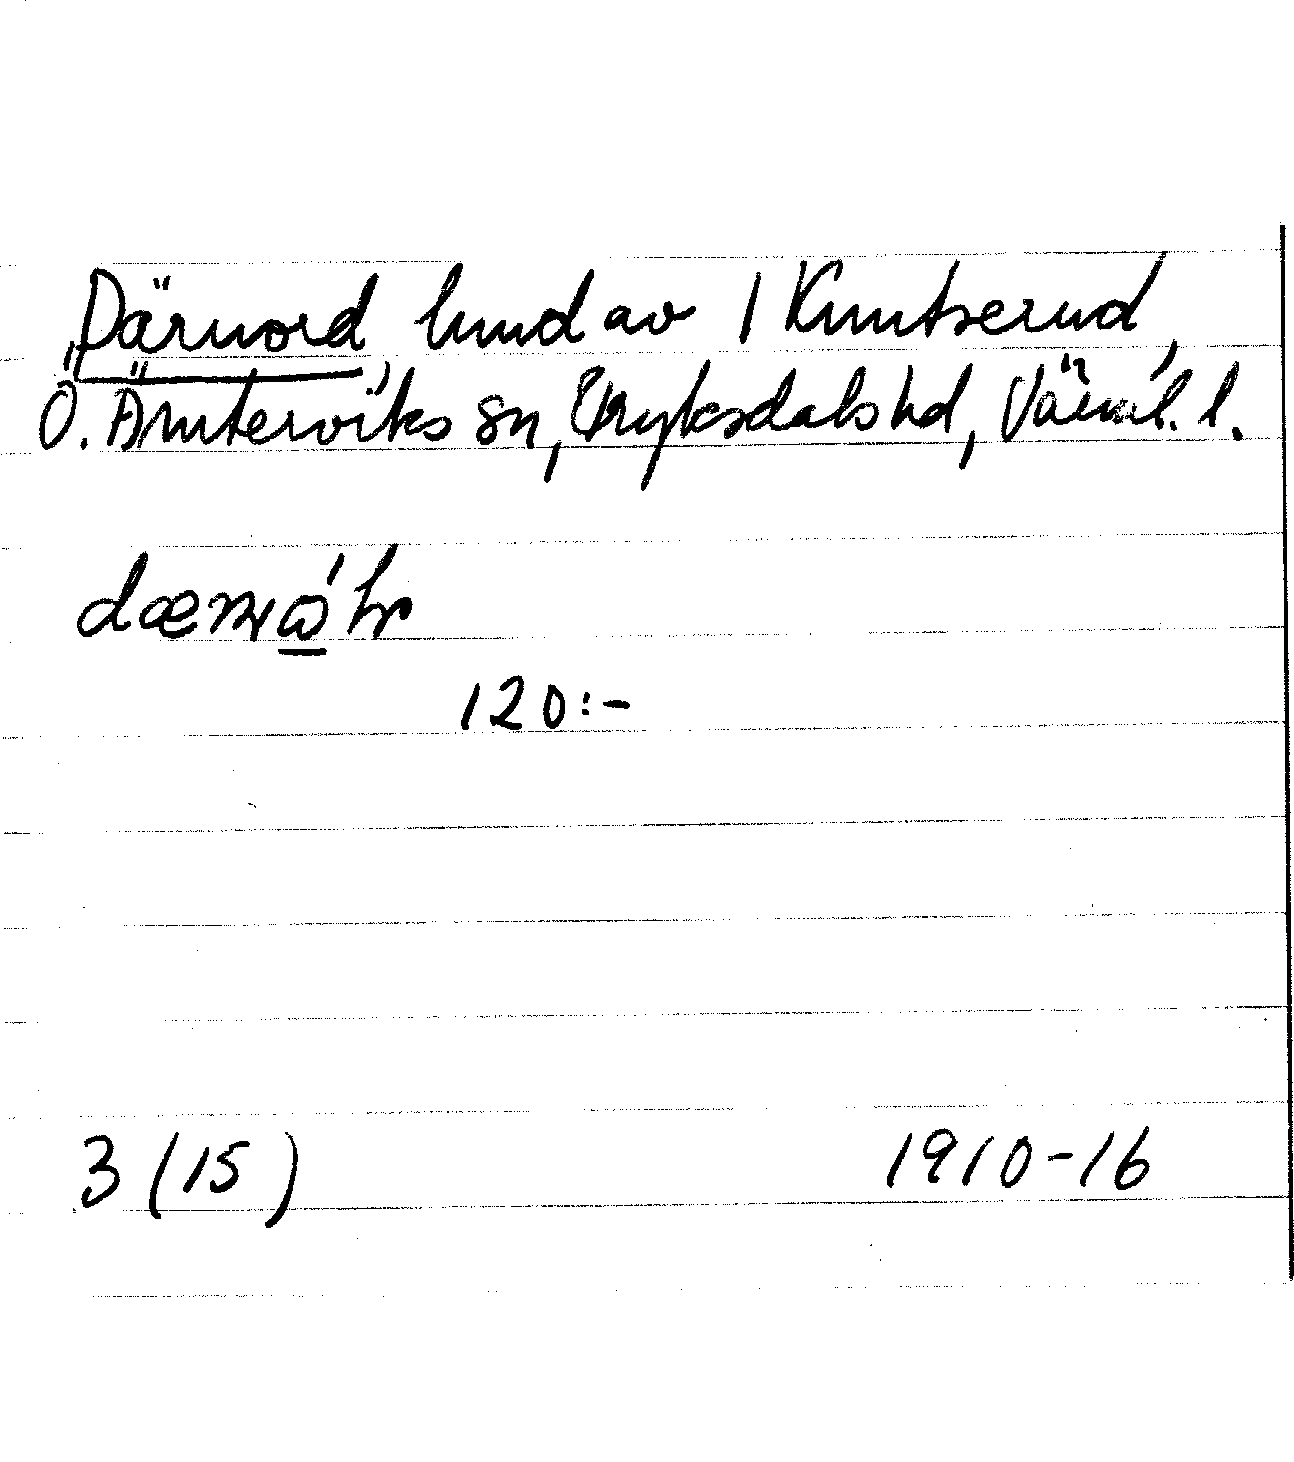 Därnord, lund av 1 Knutserud,
Ö. Ämterviks sn, Fryksdals hd, Värml. l.
120:-
3 (15) 1910-16